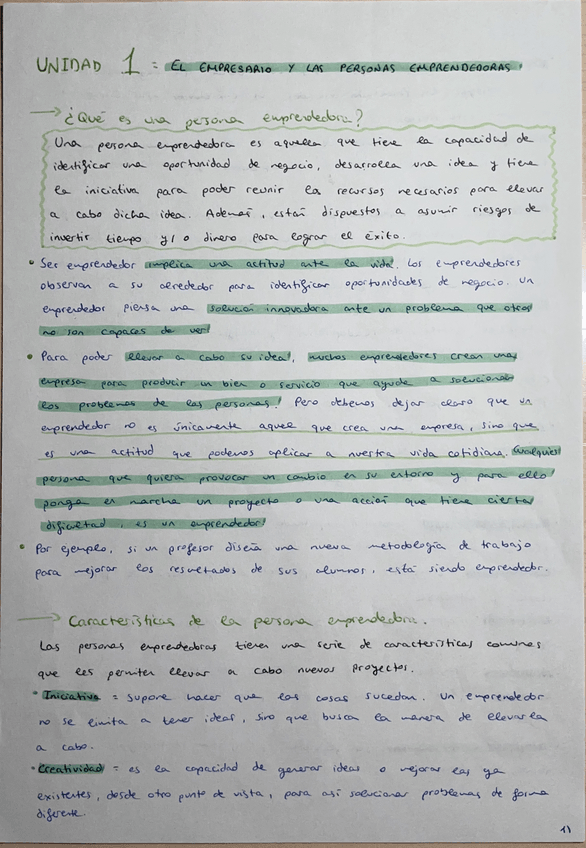 UNIDAD 1 = EL EMPRESARIO Y LAS PERSONAS EMPRENDEDORAS.
→ ¿Qué es una persona emprendedora?
Una persona emprendedora es aquella que tiene la capacidad de
identificar una oportunidad de negocio, desarrolla una idea y tiene
la iniciativa para poder reunir la recursos necesarios para llevar
a cabo dicha idea. Además, están dispuestos a asumir riesgos de
invertir tiempo y/o dinero para lograr el éxito.
• Ser emprendedor implica una actitud ante la vida. Los emprendedores
observan a su alrededor para identificar oportunidades de negocio. Un
emprendedor piensa una solución innovadora ante un problema que otros
no son capaces de ver.
• Para poder llevar a cabo su idea, muchos emprendedores crean una
empresa para producir un bien o servicio que ayude a solucionar
los problemas de las personas. Pero debemos dejar claro que un
emprendedor no es únicamente aquel que crea una empresa, sino que
es una actitud que podemos aplicar a nuestra vida cotidiana. Cualquier
persona que quiera provocar un cambio en su entorno y para ello
ponga en marcha un proyecto o una acción que tiene cierta
dificultad, es un emprendedor.
• Por ejemplo, si un profesor diseña una nueva metodología de trabajo
para mejorar los resultados de sus alumnos, está siendo emprendedor.
→ Características de la persona emprendedora.
Las personas emprendedoras tienen una serie de características comunes
que les permiten llevar a cabo nuevos proyectos.
• Iniciativa = supone hacer que las cosas sucedan. Un emprendedor
no se limita a tener ideas, sino que busca la manera de llevarla
a cabo.
• Creatividad = es la capacidad de generar ideas o mejorar las ya
existentes, desde otro punto de vista, para así solucionar problemas de forma
diferente.
1)